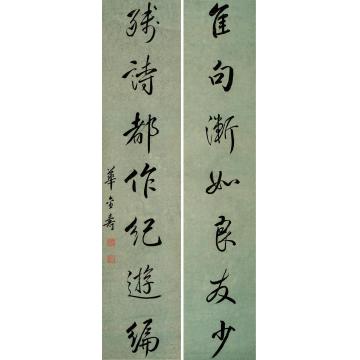 佳句漸如良友少
殘詩都作紀遊編
華金壽